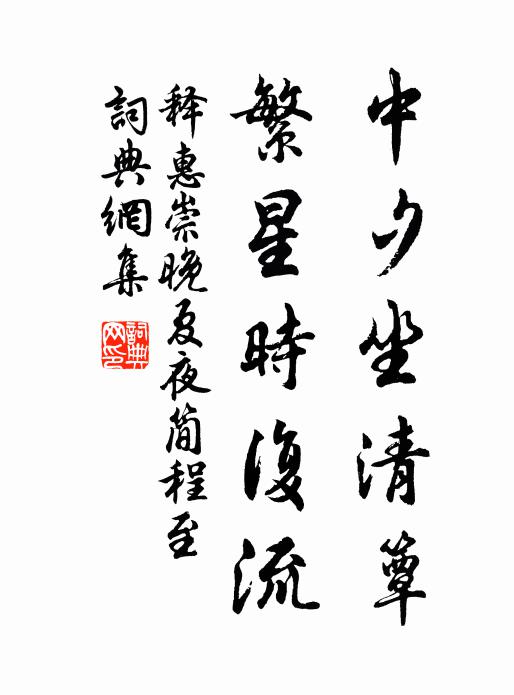 中夕坐清簟
繁星時復流
释惠崇晚夏夜简程至
詞典網集
詞典網印